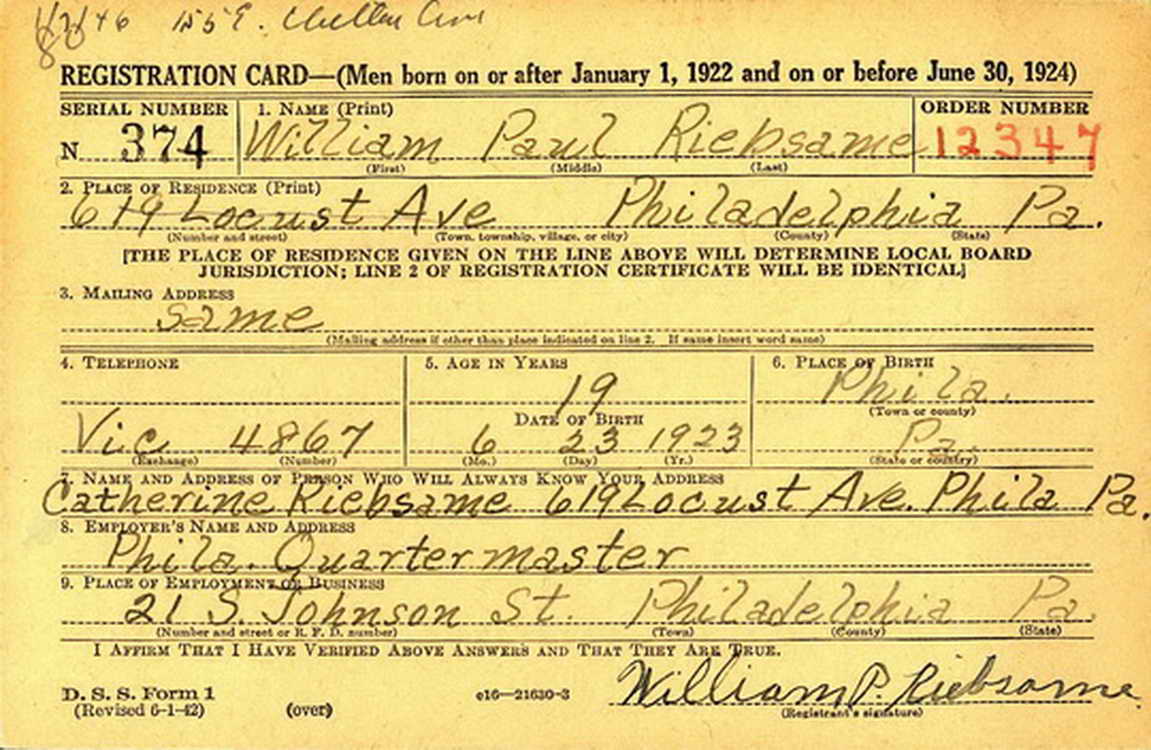 155 E.
REGISTRATION CARD—(Men born on or after January 1, 1922 and on or before June 30, 1924)
SERIAL NUMBER 1. NAME (Print) ORDER NUMBER
N 374 William Paul Riebsame 12347
(First) (Middle) (Last)
2. PLACE OF RESIDENCE (Print)
619 Locust Ave Philadelphia Pa.
(Number and street) (Town, township, village, or city) (County) (State)
[THE PLACE OF RESIDENCE GIVEN ON THE LINE ABOVE WILL DETERMINE LOCAL BOARD
JURISDICTION; LINE 2 OF REGISTRATION CERTIFICATE WILL BE IDENTICAL]
3. MAILING ADDRESS
same
(Mailing address if other than place indicated on line 2. If same insert word same)
4. TELEPHONE 5. AGE IN YEARS 6. PLACE OF BIRTH
19 Phila.
DATE OF BIRTH (Town or county)
Vic 4867 6 23 1923 Pa.
(Exchange) (Number) (Mo.) (Day) (Yr.) (State or country)
7. NAME AND ADDRESS OF PERSON WHO WILL ALWAYS KNOW YOUR ADDRESS
Catherine Riebsame 619 Locust Ave. Phila Pa.
8. EMPLOYER'S NAME AND ADDRESS
Phila. Quartermaster
9. PLACE OF EMPLOYMENT OR BUSINESS
21 S. Johnson St. Philadelphia Pa.
(Number and street or R. F. D. number) (Town) (County) (State)
I AFFIRM THAT I HAVE VERIFIED ABOVE ANSWERS AND THAT THEY ARE TRUE.
D. S. S. Form 1 e16—21630-3 William P. Riebsame
(Revised 6-1-42) (over) (Registrant's signature)